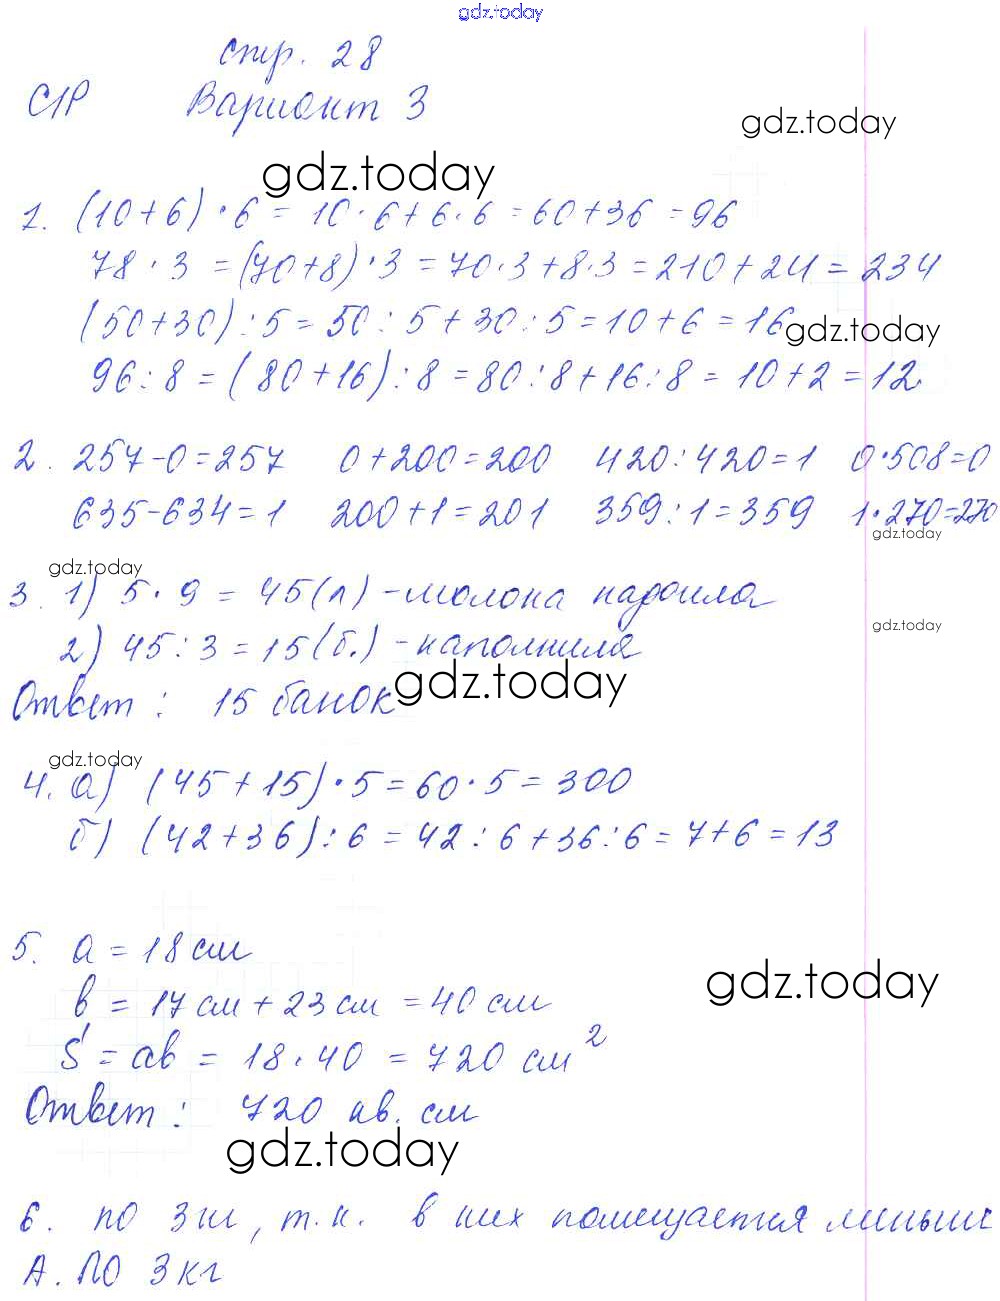 gdz.today
стр. 28
С/Р Вариант 3
gdz.today
gdz.today
1. (10+6)·6=10·6+6·6=60+36=96
78·3=(70+8)·3=70·3+8·3=210+24=234
(50+30):5=50:5+30:5=10+6=16
gdz.today
96:8=(80+16):8=80:8+16:8=10+2=12
2. 257-0=257 0+200=200 420:420=1 0·508=0
635-634=1 200+1=201 359:1=359 1·270=270
gdz.today
gdz.today
3. 1) 5·9=45(л)-молока надоила
gdz.today
2) 45:3=15(б.)-наполнила
Ответ: 15 банок
gdz.today
gdz.today
4. а) (45+15)·5=60·5=300
б) (42+36):6=42:6+36:6=7+6=13
5. a=18 см
b=17 см+23 см=40 см
gdz.today
S=ab=18·40=720 см²
Ответ: 720 кв. см
gdz.today
6. по 3 кг, т.к. в них помещается меньше
А. По 3 кг